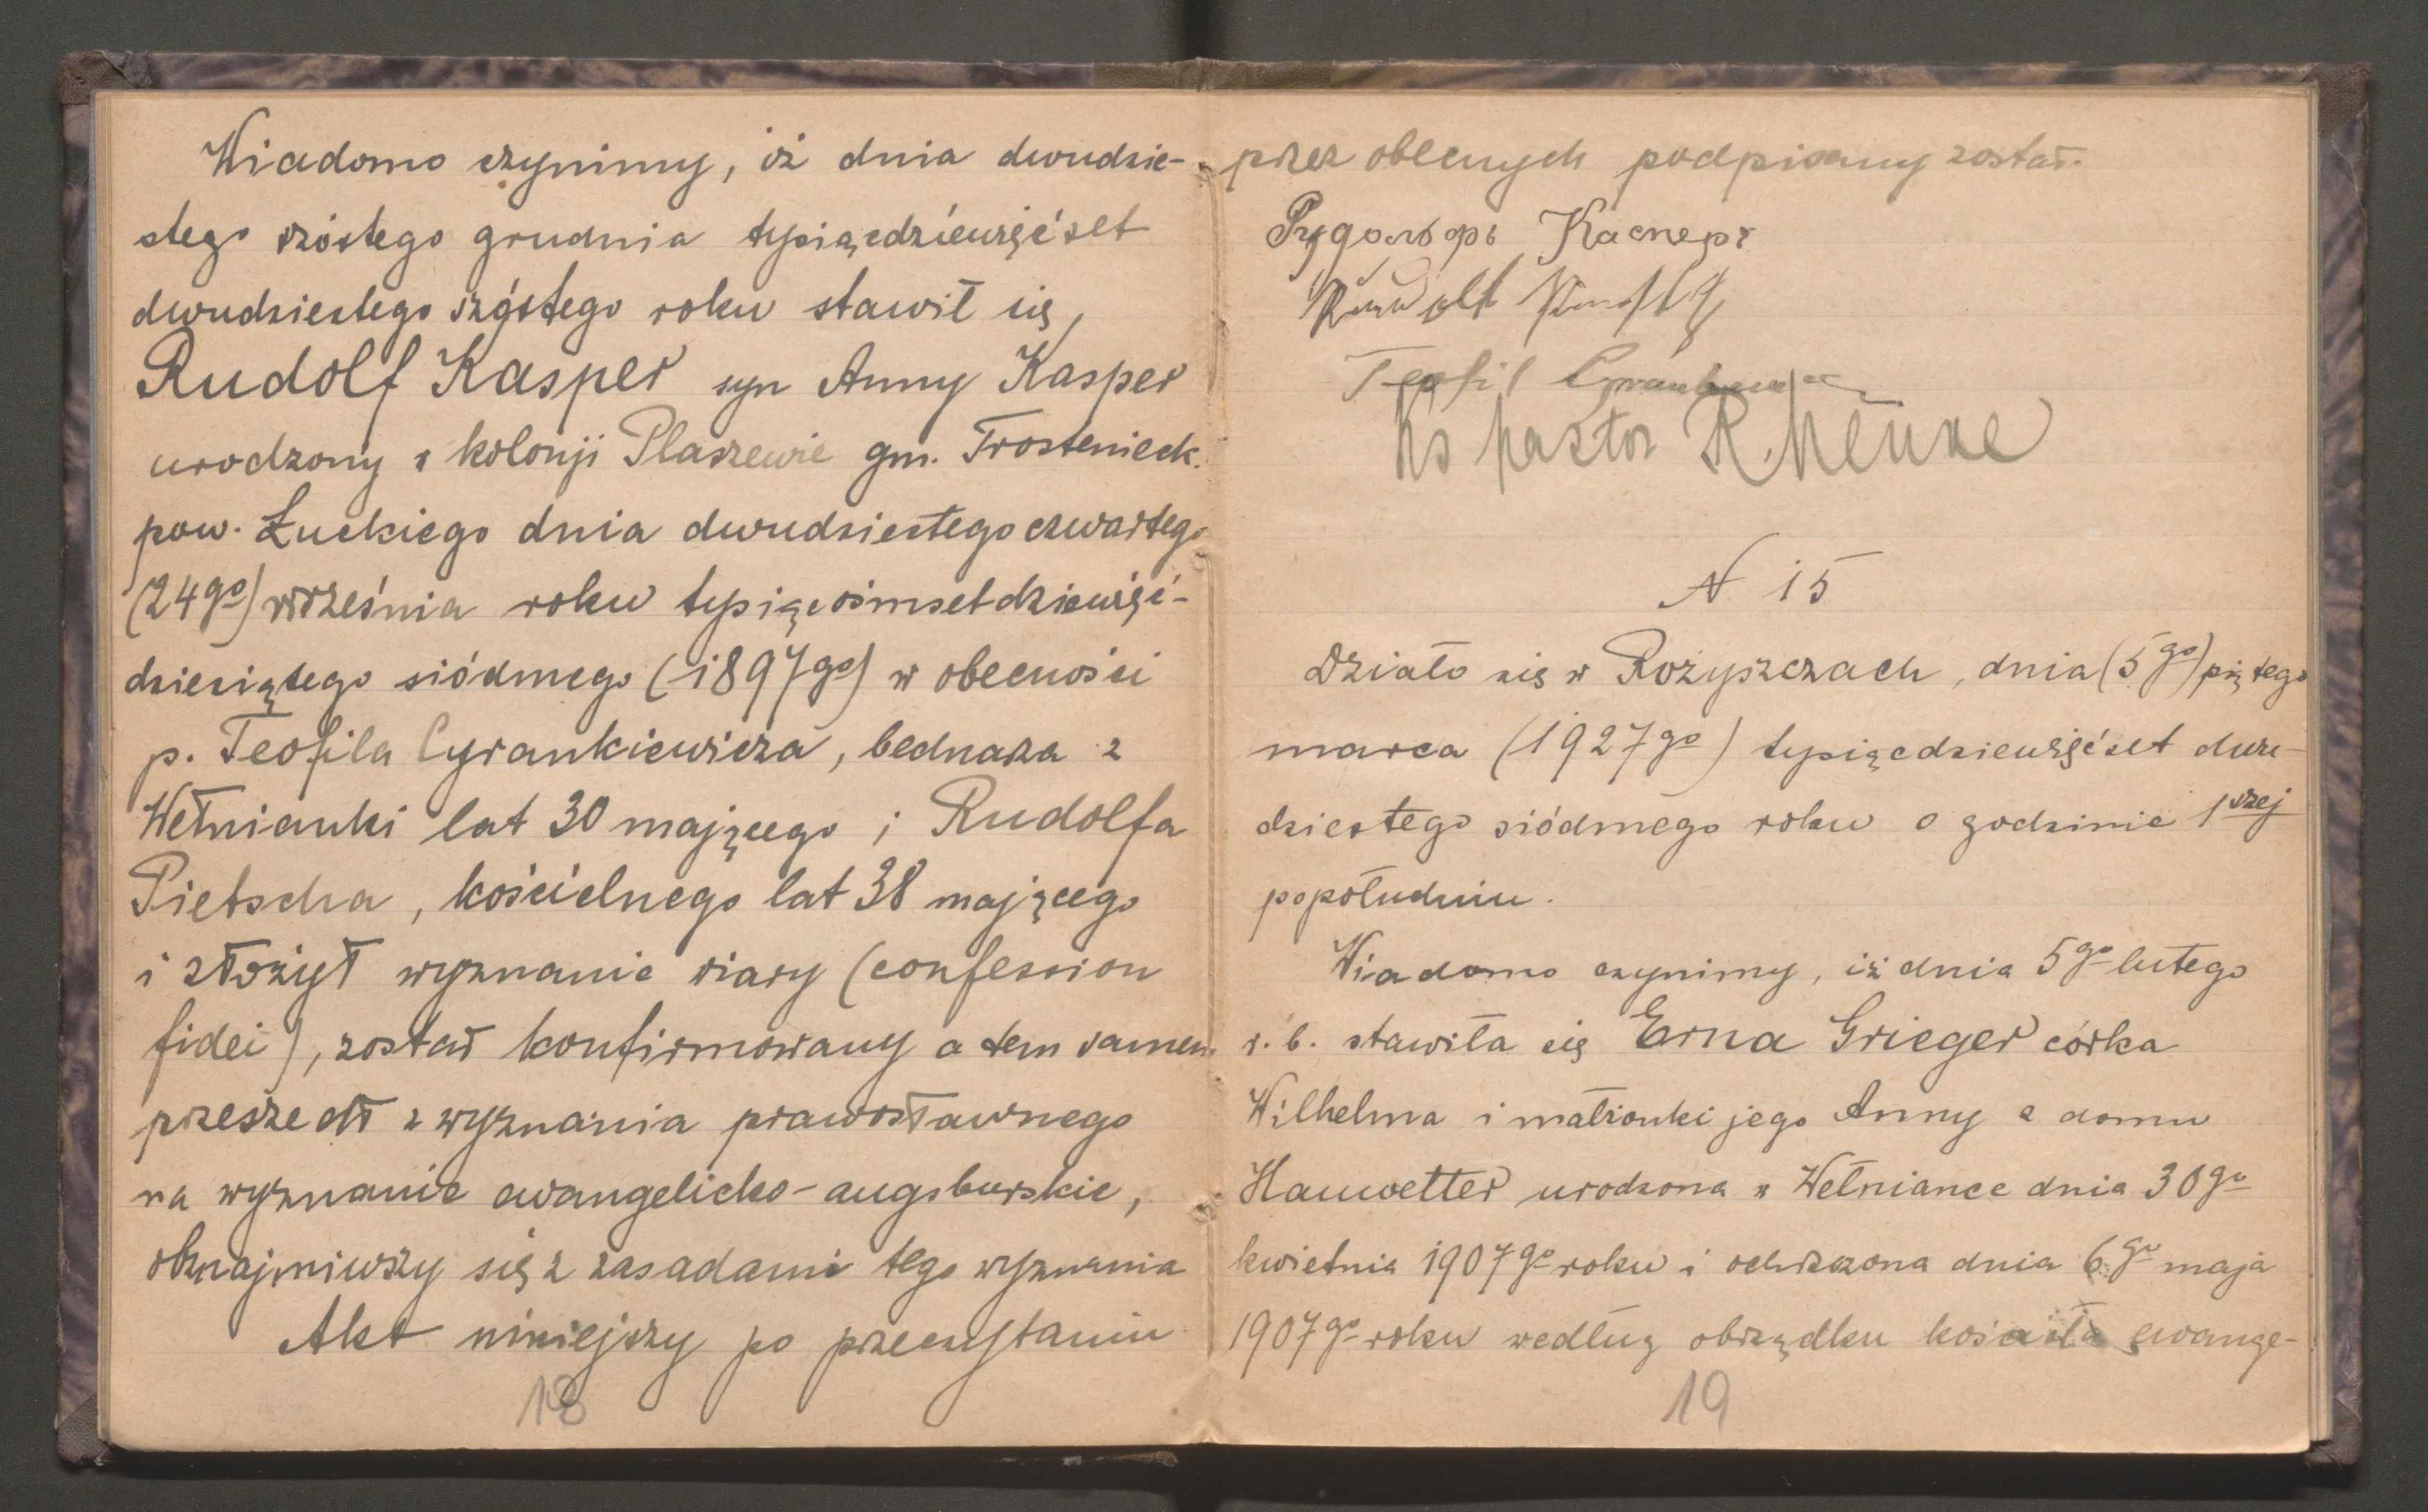 Wiadomo czynimy, iż dnia dwudzie-
stego szóstego grudnia tysiącdziewięćset
dwudziestego szóstego roku stawił się,
Rudolf Kasper syn Anny Kasper
urodzony w kolonji Płaszewie gm. Trostenieck.
pow. Łuckiego dnia dwudziestego czwartego
(24go) września roku tysiącośmsetdziewięć-
dziesiątego siódmego (1897go) w obecności
p. Teofila Cyrankiewicza, bednarza z
Wełnianki lat 30 mającego i Rudolfa
Pietscha, kościelnego lat 38 mającego
i złożył wyznanie wiary (confession
fidei), został konfirmowany a tem samem
przeszedł z wyznania prawosławnego
na wyznanie ewangelicko-augsburskie,
obznajmiwszy się z zasadami tego wyznania
Akt niniejszy po przeczytaniu
18
przez obecnych podpisany został.
Рудольфъ Касперъ
Rudolf
Teofil Cyrankiewicz
Ks pastor R. Kleinze
N 15
Działo się w Rożyszczach, dnia (5go) piątego
marca (1927go) tysiącdziewięćset dwu-
dziestego siódmego roku o godzinie 1szej
popołudniu.
Wiadomo czynimy, iż dnia 5go lutego
r. b. stawiła się Erna Grieger córka
Wilhelma i małżonki jego Anny z domu
Hauwetter urodzona w Wełniance dnia 30go
kwietnia 1907go roku i ochrzczona dnia 6go maja
1907go roku według obrządku kościoła ewange-
19